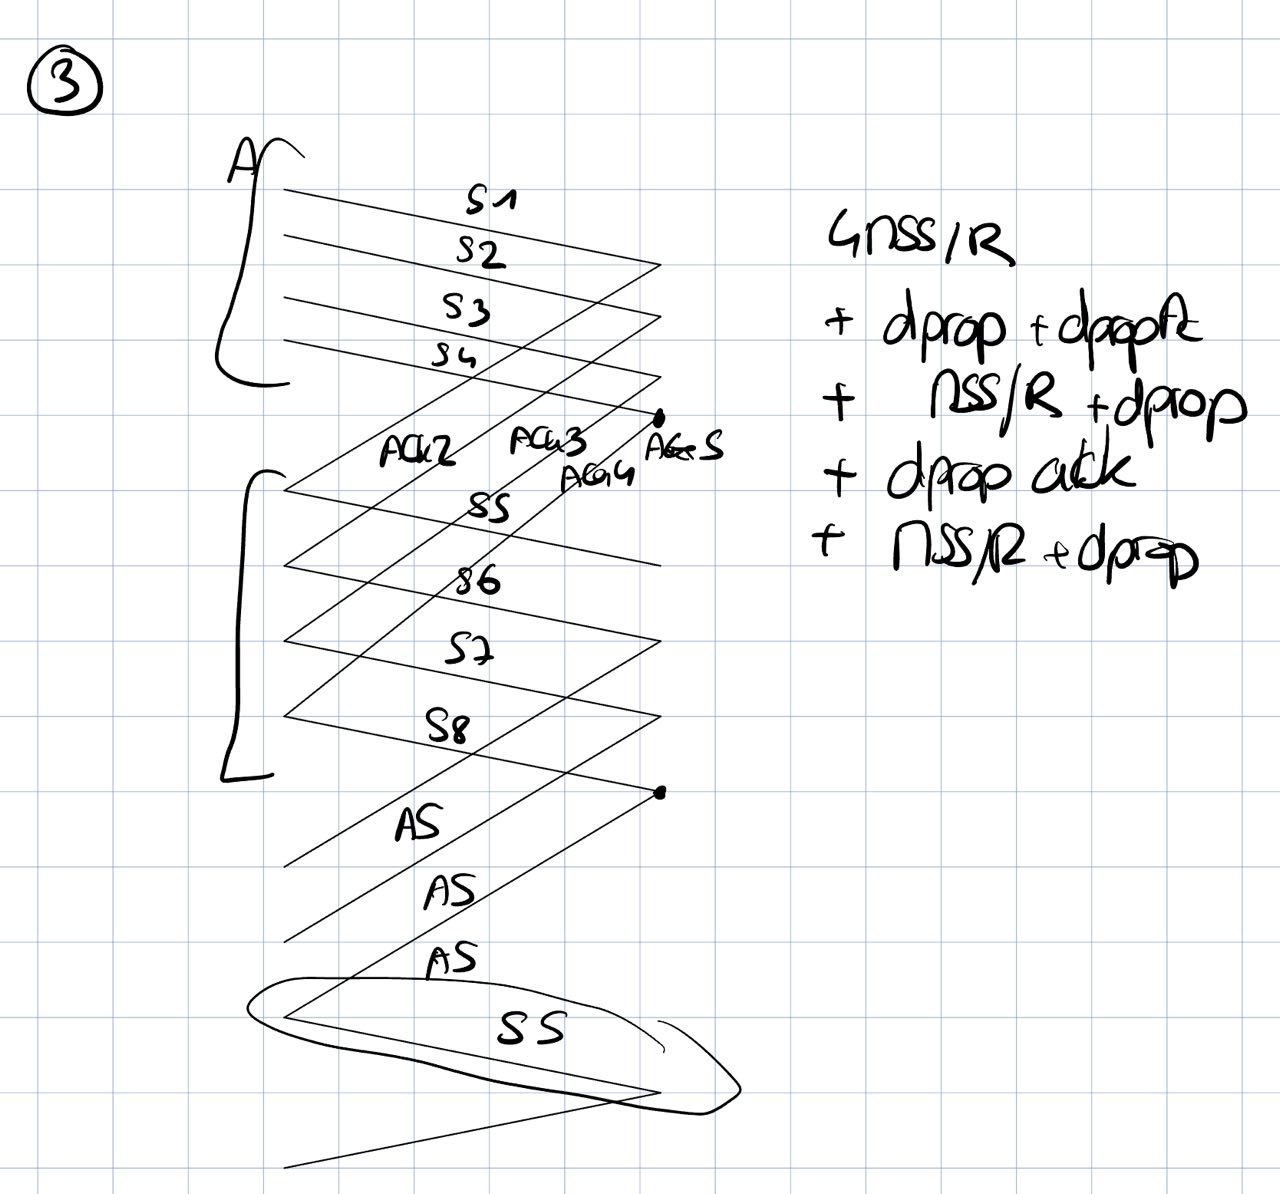 3
A
S1
S2
S3
S4
ACK2
ACK3
ACK4
ACK5
S5
S6
S7
S8
A5
A5
A5
S5
4MSS/R
+ dprop + dprop
+ MSS/R + dprop
+ dprop ack
+ MSS/R + dprop